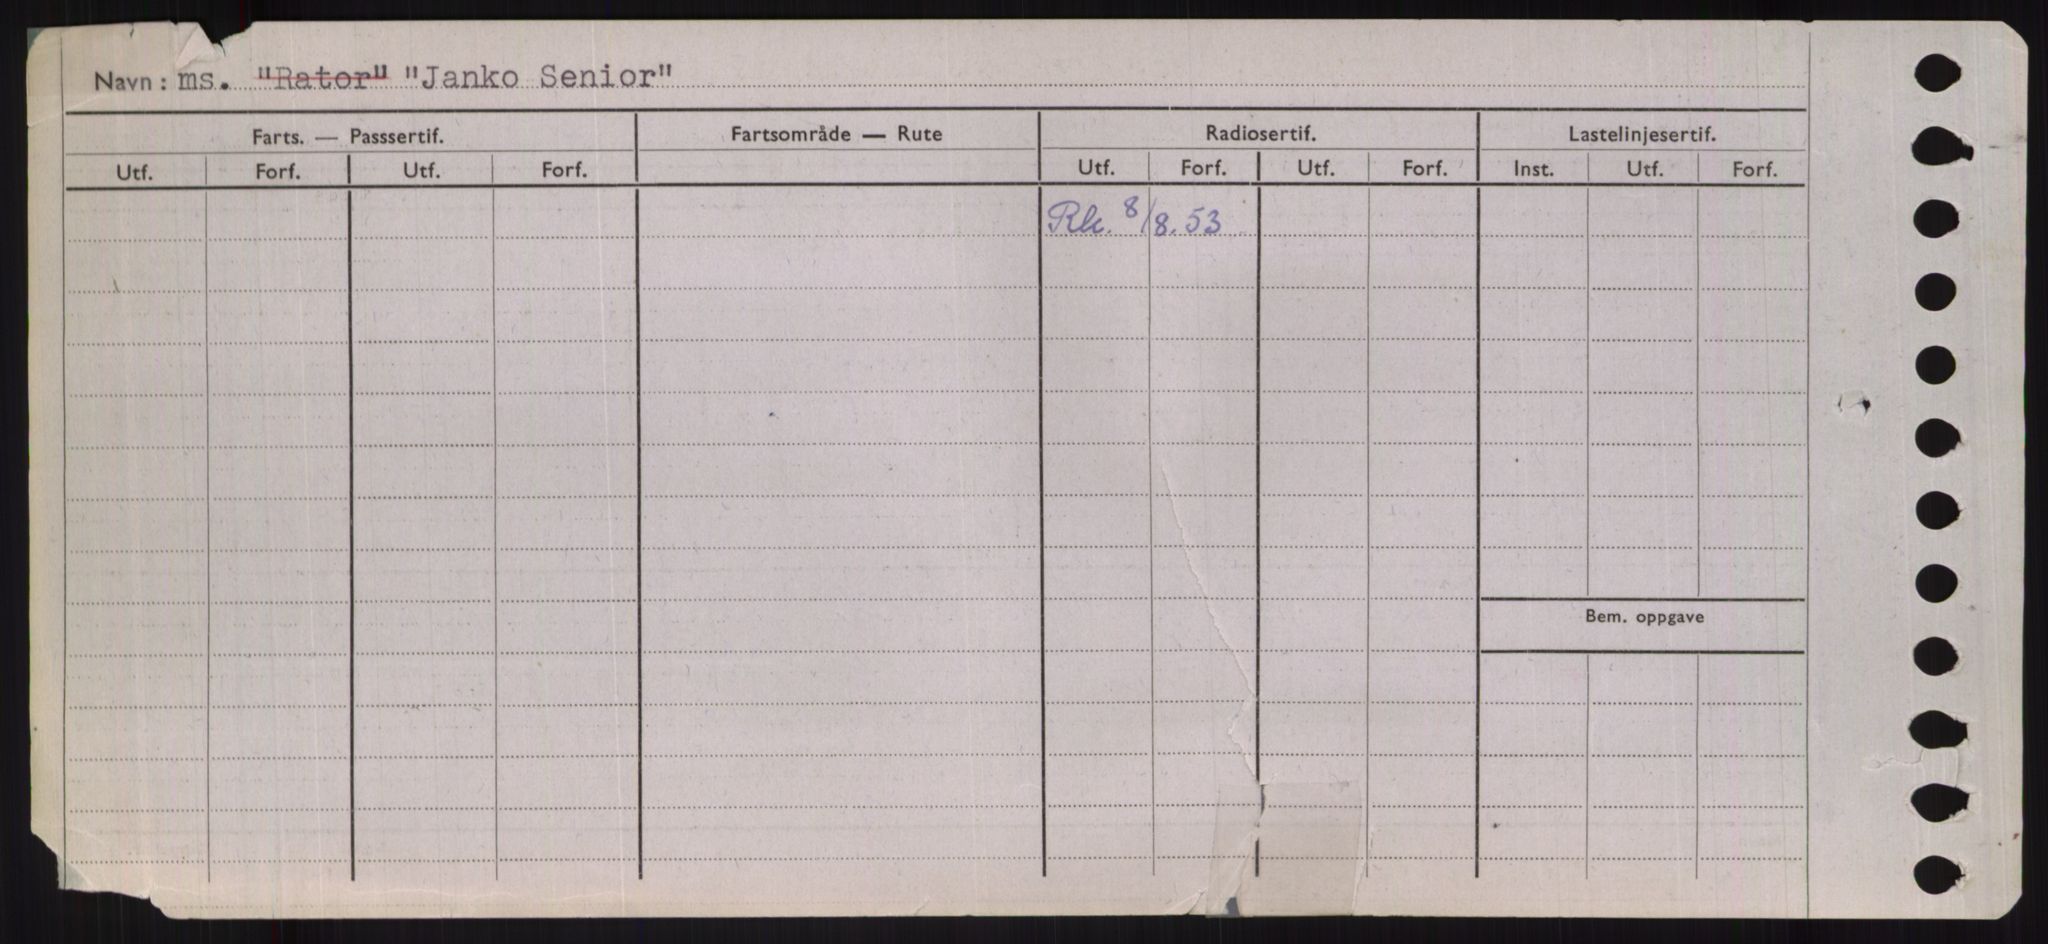 Navn: ms. "Rator" "Janko Senior"
Farts. — Passsertif. Fartsområde — Rute Radiosertif. Lastelinjesertif.
Utf. Forf. Utf. Forf. Utf. Forf. Utf. Forf. Inst. Utf. Forf.
Rk. 8/8.53
Bem. oppgave